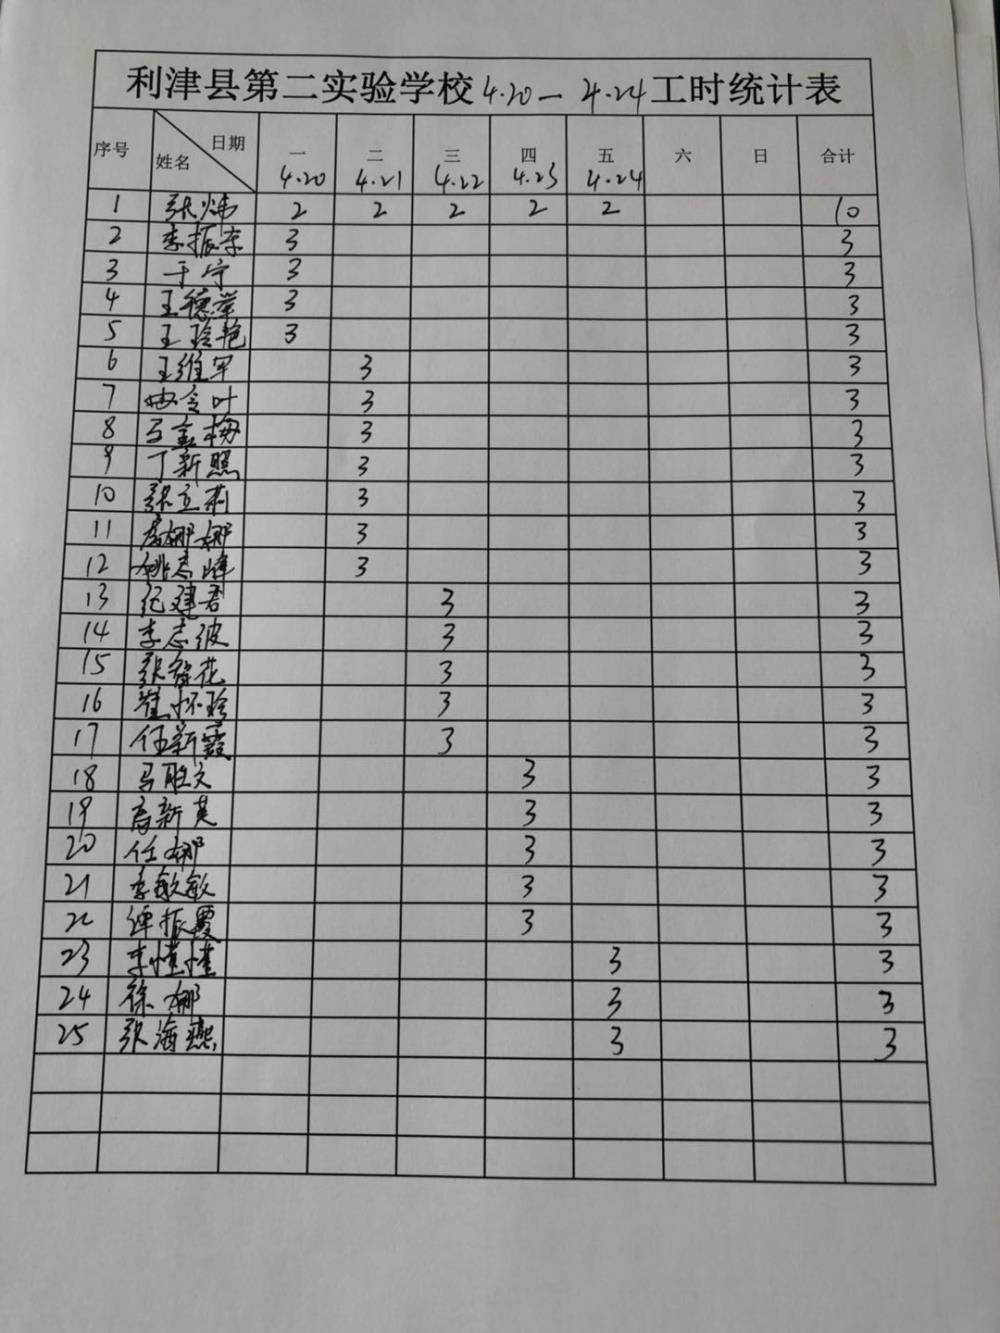 利津县第二实验学校4.20—4.24工时统计表
序号 日期 姓名 一 4.20 二 4.21 三 4.22 四 4.23 五 4.24 六 日 合计
1 张炜 2 2 2 2 2 10
2 李振东 3 3
3 于宁 3 3
4 王德举 3 3
5 王玲艳 3 3
6 王维军 3 3
7 曲会叶 3 3
8 王金梅 3 3
9 丁新照 3 3
10 张立莉 3 3
11 娜娜 3 3
12 姚志峰 3 3
13 纪建君 3 3
14 李志波 3 3
15 张花 3 3
16 崔怀玲 3 3
17 任新霞 3 3
18 马胜文 3 3
19 高新英 3 3
20 任娜 3 3
21 李敏敏 3 3
22 振霞 3 3
23 李 3 3
24 徐娜 3 3
25 张海燕 3 3